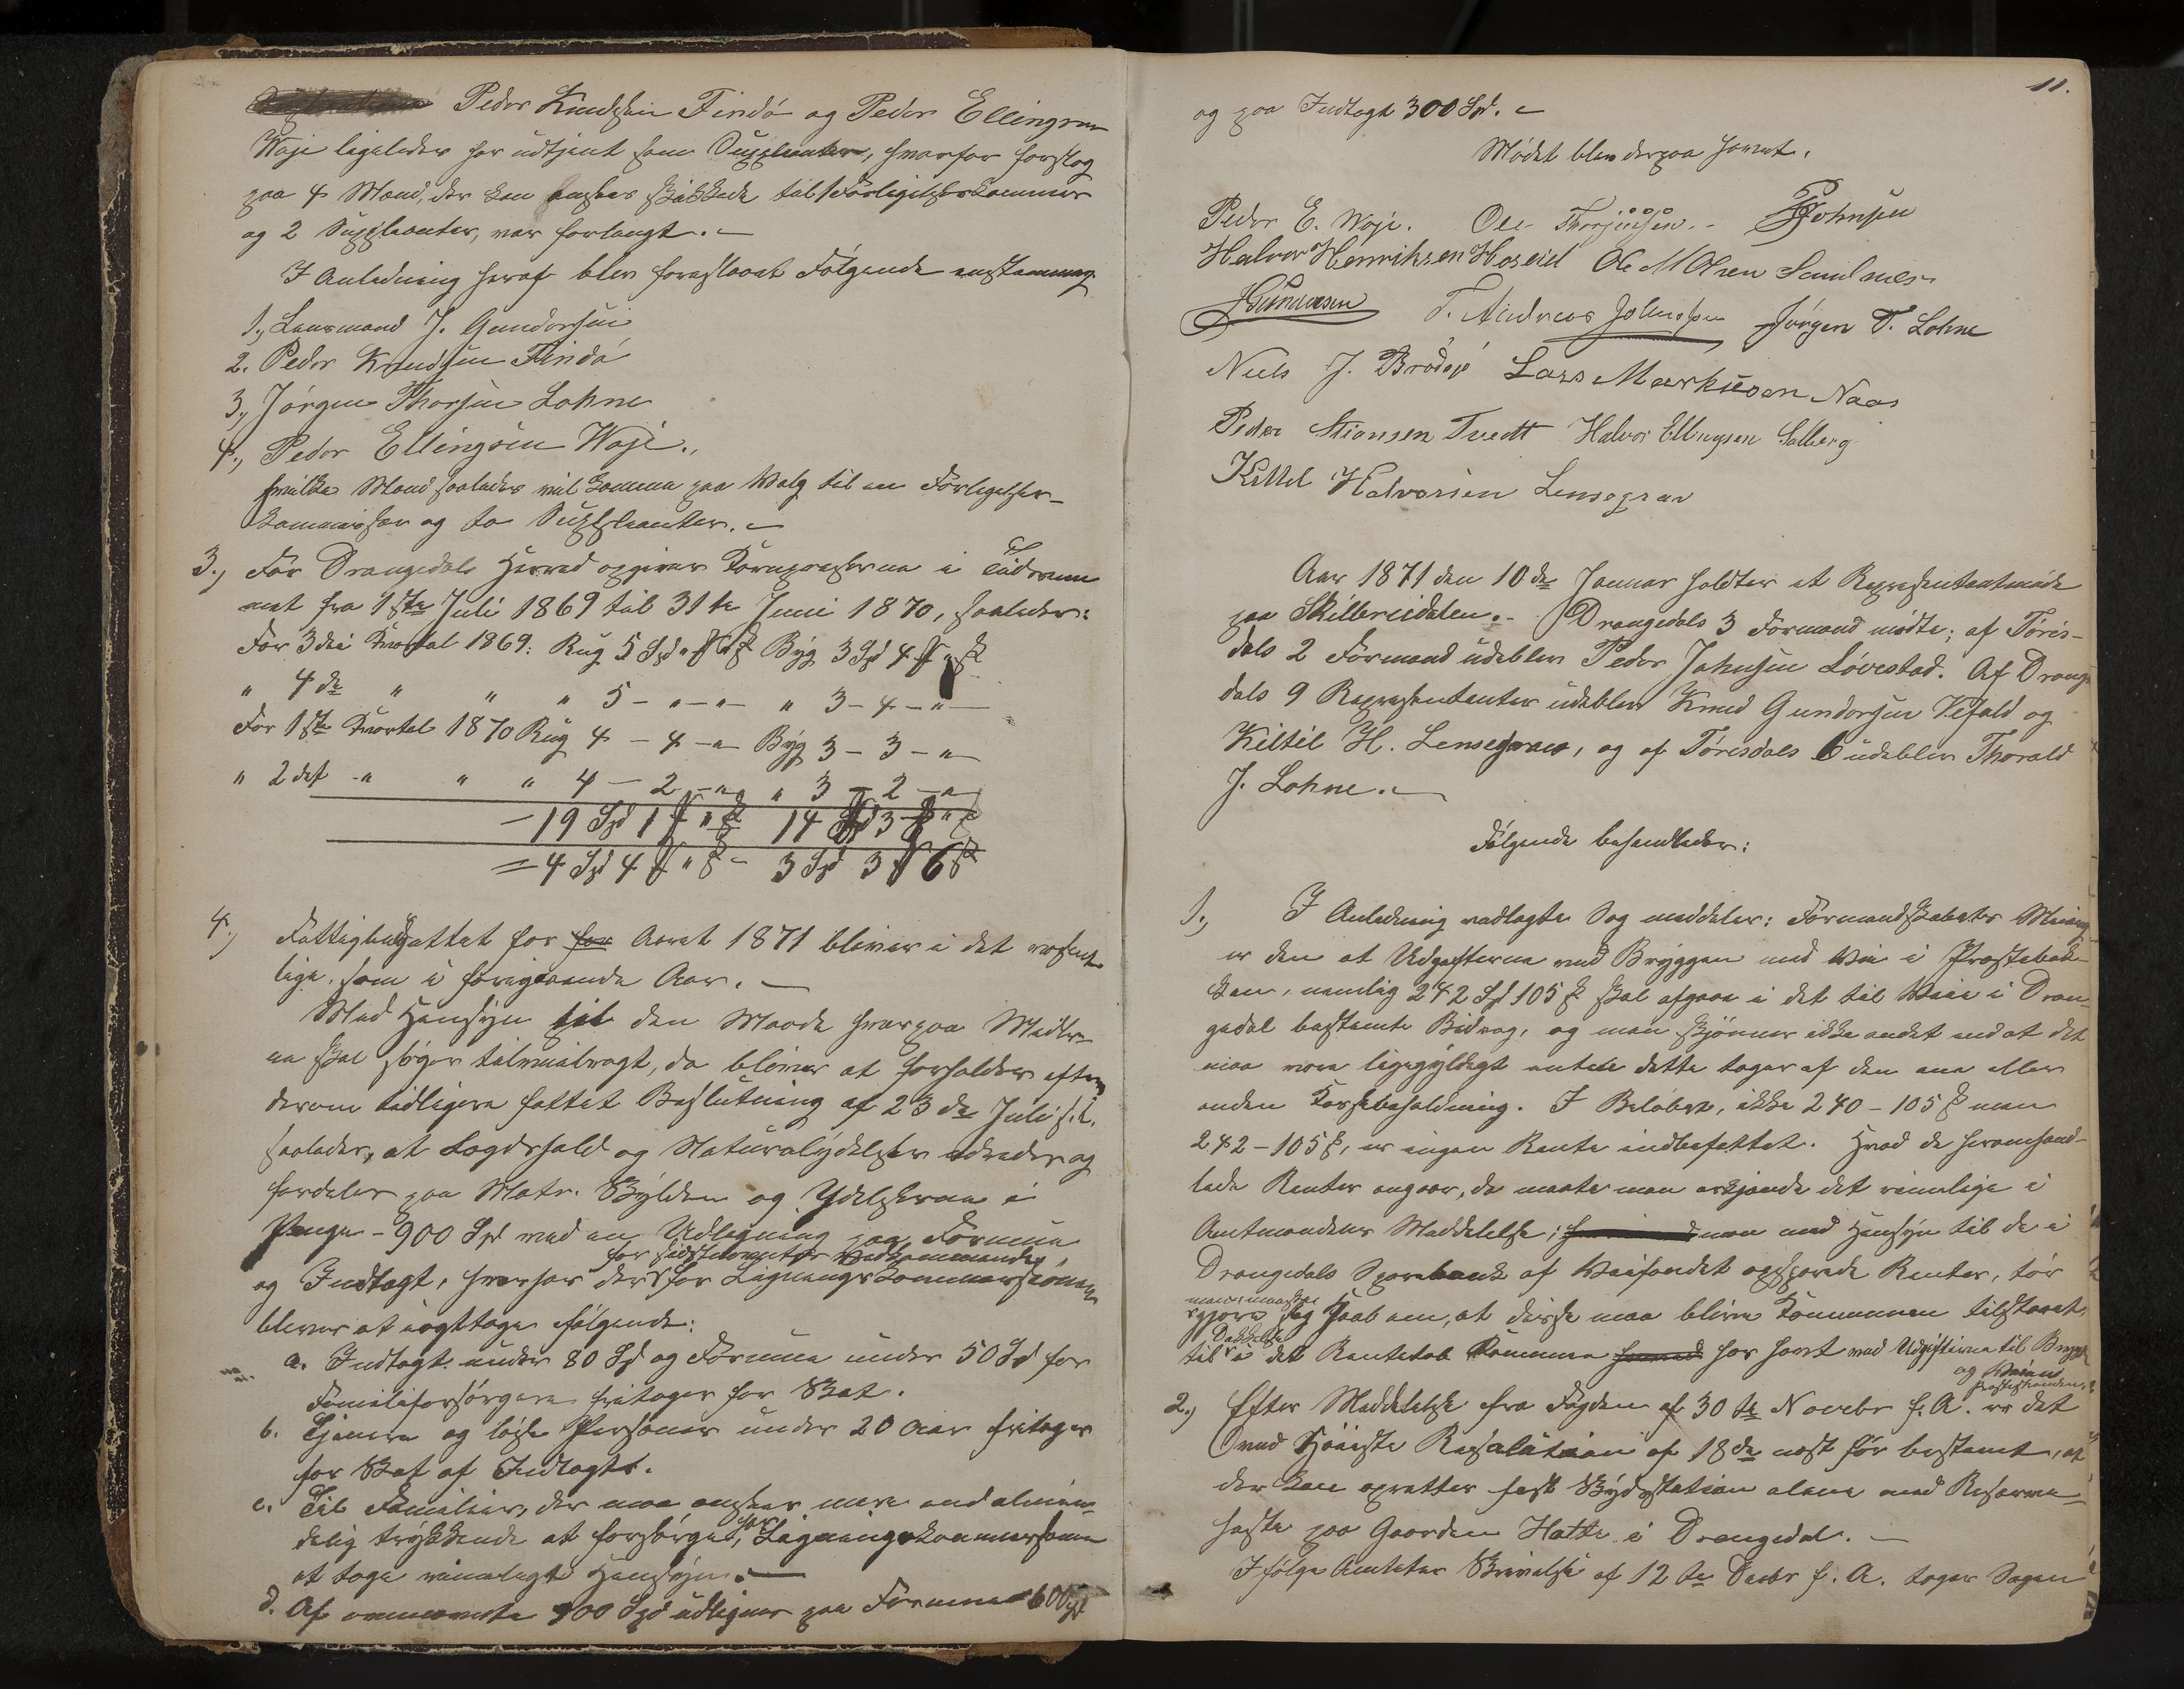 Peder Knudsen Findø og Peder Ellingsen
Woje ligeledes har udtjent som Suppleanter, hvorfor Forslag
paa 4 Mænd, der kan ansees skikkede til Forligelseskommissær
og 2 Suppleanter, var forlangt. –
I Anledning heraf blev foreslaaet Følgende enstemmig
1., Lensmand J. Gundersen
2. Peder Knudsen Findø
3., Jørgen Thorsen Lohne
4., Peder Ellingsen Woje.,
hvilke Mænd saaledes vil komme paa Valg til en Forligelses-
kommissær og to Suppleanter. –
3., For Drangedals Herred opgives Kornpriserne i Tidrum
met fra 1ste Juli 1869 til 31te Juni 1870, saaledes:
For 3die Kvartal 1869: Rug 5 Spd " ß Byg 3 Spd 4 " ß
" 4de " " " 5 – " – " – " 3 – 4 – " –
For 1ste Kvartal 1870 Rug 4 – 4 – " – Byg 3 – 3 – " –
" 2det – " " " 4 – 2 – " – " 3 – 2 – " –
– 19 Spd 1 " ß 14 Spd 3 " ß
= 4 Spd 4 " ß – 3 Spd 3 6 ß
4., Fattigbudgettet for for Aaret 1871 bliver i det væsent-
lige som i foregaaende Aar. –
Med Hensyn til den Maade hvorpaa Midler-
ne skal søges tilveiebragt, da bliver at forholdes efter
derom tidligere fattet Beslutning af 23de Juli f. A.
saaledes, at Lægdshold og Naturalydelser udredes og
fordeles paa Matr. Skylden og Ydelserne i
Penge – 900 Spd ved en Udligning paa Formue
for sidstnævntes Vedkommende,
og Indtægt, hvorhos der for Ligningskommissionen
bliver at iagttage følgende:
a. Indtægt under 80 Spd og Formue under 50 Spd for
Familieforsørgere fritages for Skat.
b. Tjenere og løse Personer under 20 Aar fritages
for Skat af Indtægt.
c. Til Familier, der maa ansees mere end almin-
delig trykkende at forsørge, har Ligningskommissionen
at tage rimeligt Hensyn. –
d. Af omnævnte 900 Spd udlignes paa Formue 600 Spd
11.
og paa Indtægt 300 Spd. –
Mødet blev derpaa hævet.
Peder E. Woje. Ole Thorjussen. – Johnsen
Halvor Henriksen Hoseid Ole M Olsen Sandnes
J Gundersen T. Andreas Johnsen Jørgen T. Lohne
Niels J. Brødsjø Lars Markusen Naas
Peder Stiansen Tvedt Halvor Ellingsen Solberg
Kittel Halvorsen Lensegrav
Aar 1871 den 10de Januar holdtes et Repræsentantmøde
paa Skilbreidalen. – Drangedals 3 Formænd mødte; af Tøris-
dals 2 Formænd udeblev Peder Johnsen Løvestad. Af Drange
dals 9 Repræsentanter udeblev Knud Gundersen Vefald og
Kittil H. Lensegrav, og af Tørisdals 6 udeblev Thorald
J. Lohne. –
Følgende behandledes:
1., I Anledning vedlagte Sag meddeles: Formandskabets Mening
er den at Udgifterne med Bryggen med Vei i Prestebak-
ken, nemlig 242 Spd 105 ß skal afgaae i det til Veie i Dran-
gedal bestemte Bidrag, og man skjønner ikke andet end at det
maa være ligegyldigt enten dette tages af den ene eller
anden Kassebeholdning. I Beløbet, ikke 240 – 105 ß men
242 – 105 ß, er ingen Rente indbefattet. Hvad de heromhand-
lede Renter angaar, da maate man erkjende det rimelige i
Amtmandens Meddelelse; men med Hensyn til de i
Drangedals Sparebank af Veifondet opsparede Renter, tør
man maaske
gjøre sig Haab om, at disse maa blive Kommunen tilstaaet,
Dækkelse
til i det Rentetab Kommunen har havt med Udgifterne til Bryggen
og Veien
Prestestranden.
2., Efter Meddelelse fra Fogden af 30te Novbr f. A. er det
ved Høieste Resolution af 18de næst før bestemt, at
der kan oprettes fast Skydsstation alene med Reserve-
heste paa Gaarden Hatte i Drangedal. –
Ifølge Amtets Skrivelse af 12te Decbr f. A. tages Sagen